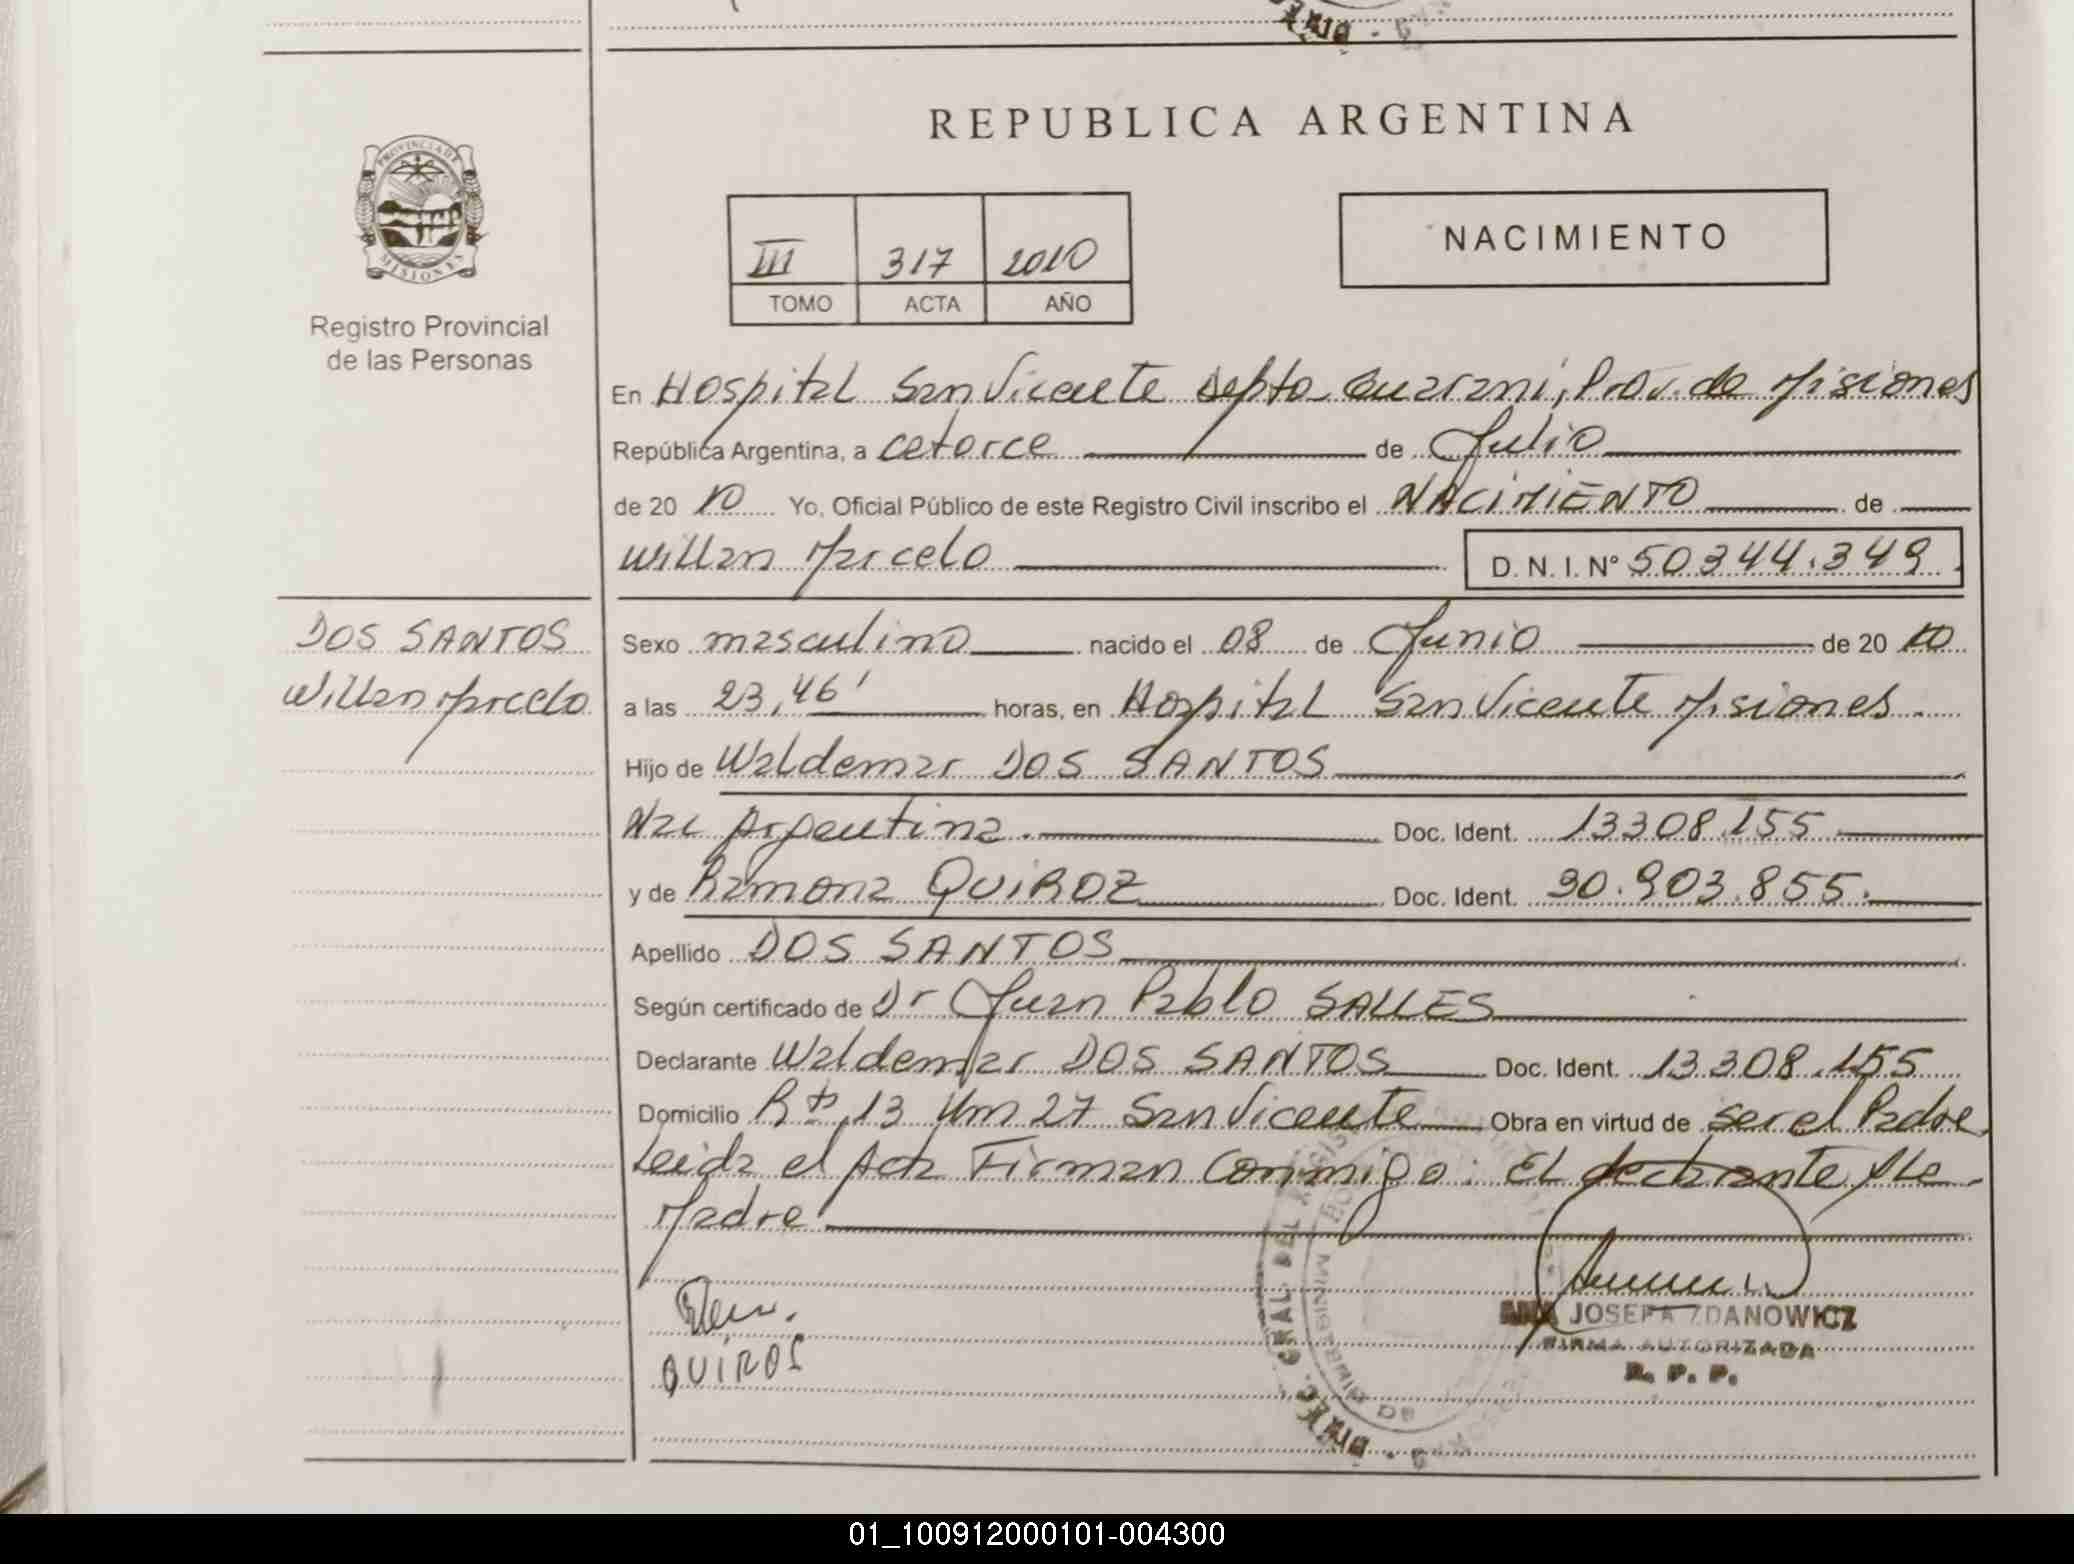 REPUBLICA ARGENTINA
PROVINCIA DE
MISIONES
Registro Provincial
de las Personas
III 317 2010
TOMO ACTA AÑO
NACIMIENTO
En Hospital San Vicente Depto Guarani, Prov. de Misiones
República Argentina, a catorce de Julio
de 20 10 Yo, Oficial Público de este Registro Civil inscribo el NACIMIENTO de
Willan Marcelo D. N. I. Nº 50344.349
DOS SANTOS
Willan Marcelo
Sexo masculino nacido el 08 de Junio de 20 10
a las 23,46' horas, en Hospital San Vicente Misiones.
Hijo de Waldemar DOS SANTOS
Nac Argentina. Doc. Ident. 13308.155
y de Ramona QUIROZ Doc. Ident. 30.903.855.
Apellido DOS SANTOS
Según certificado de Dr Juan Pablo SALLES
Declarante Waldemar DOS SANTOS Doc. Ident. 13308.155
Domicilio Rta 13 Km 27 San Vicente Obra en virtud de ser el Padre
Leida el Acta Firman Conmigo: El declarante y la
Madre
QUIROS
ANA JOSEFA ZDANOWICZ
FIRMA AUTORIZADA
R. P. P.
01_100912000101-004300